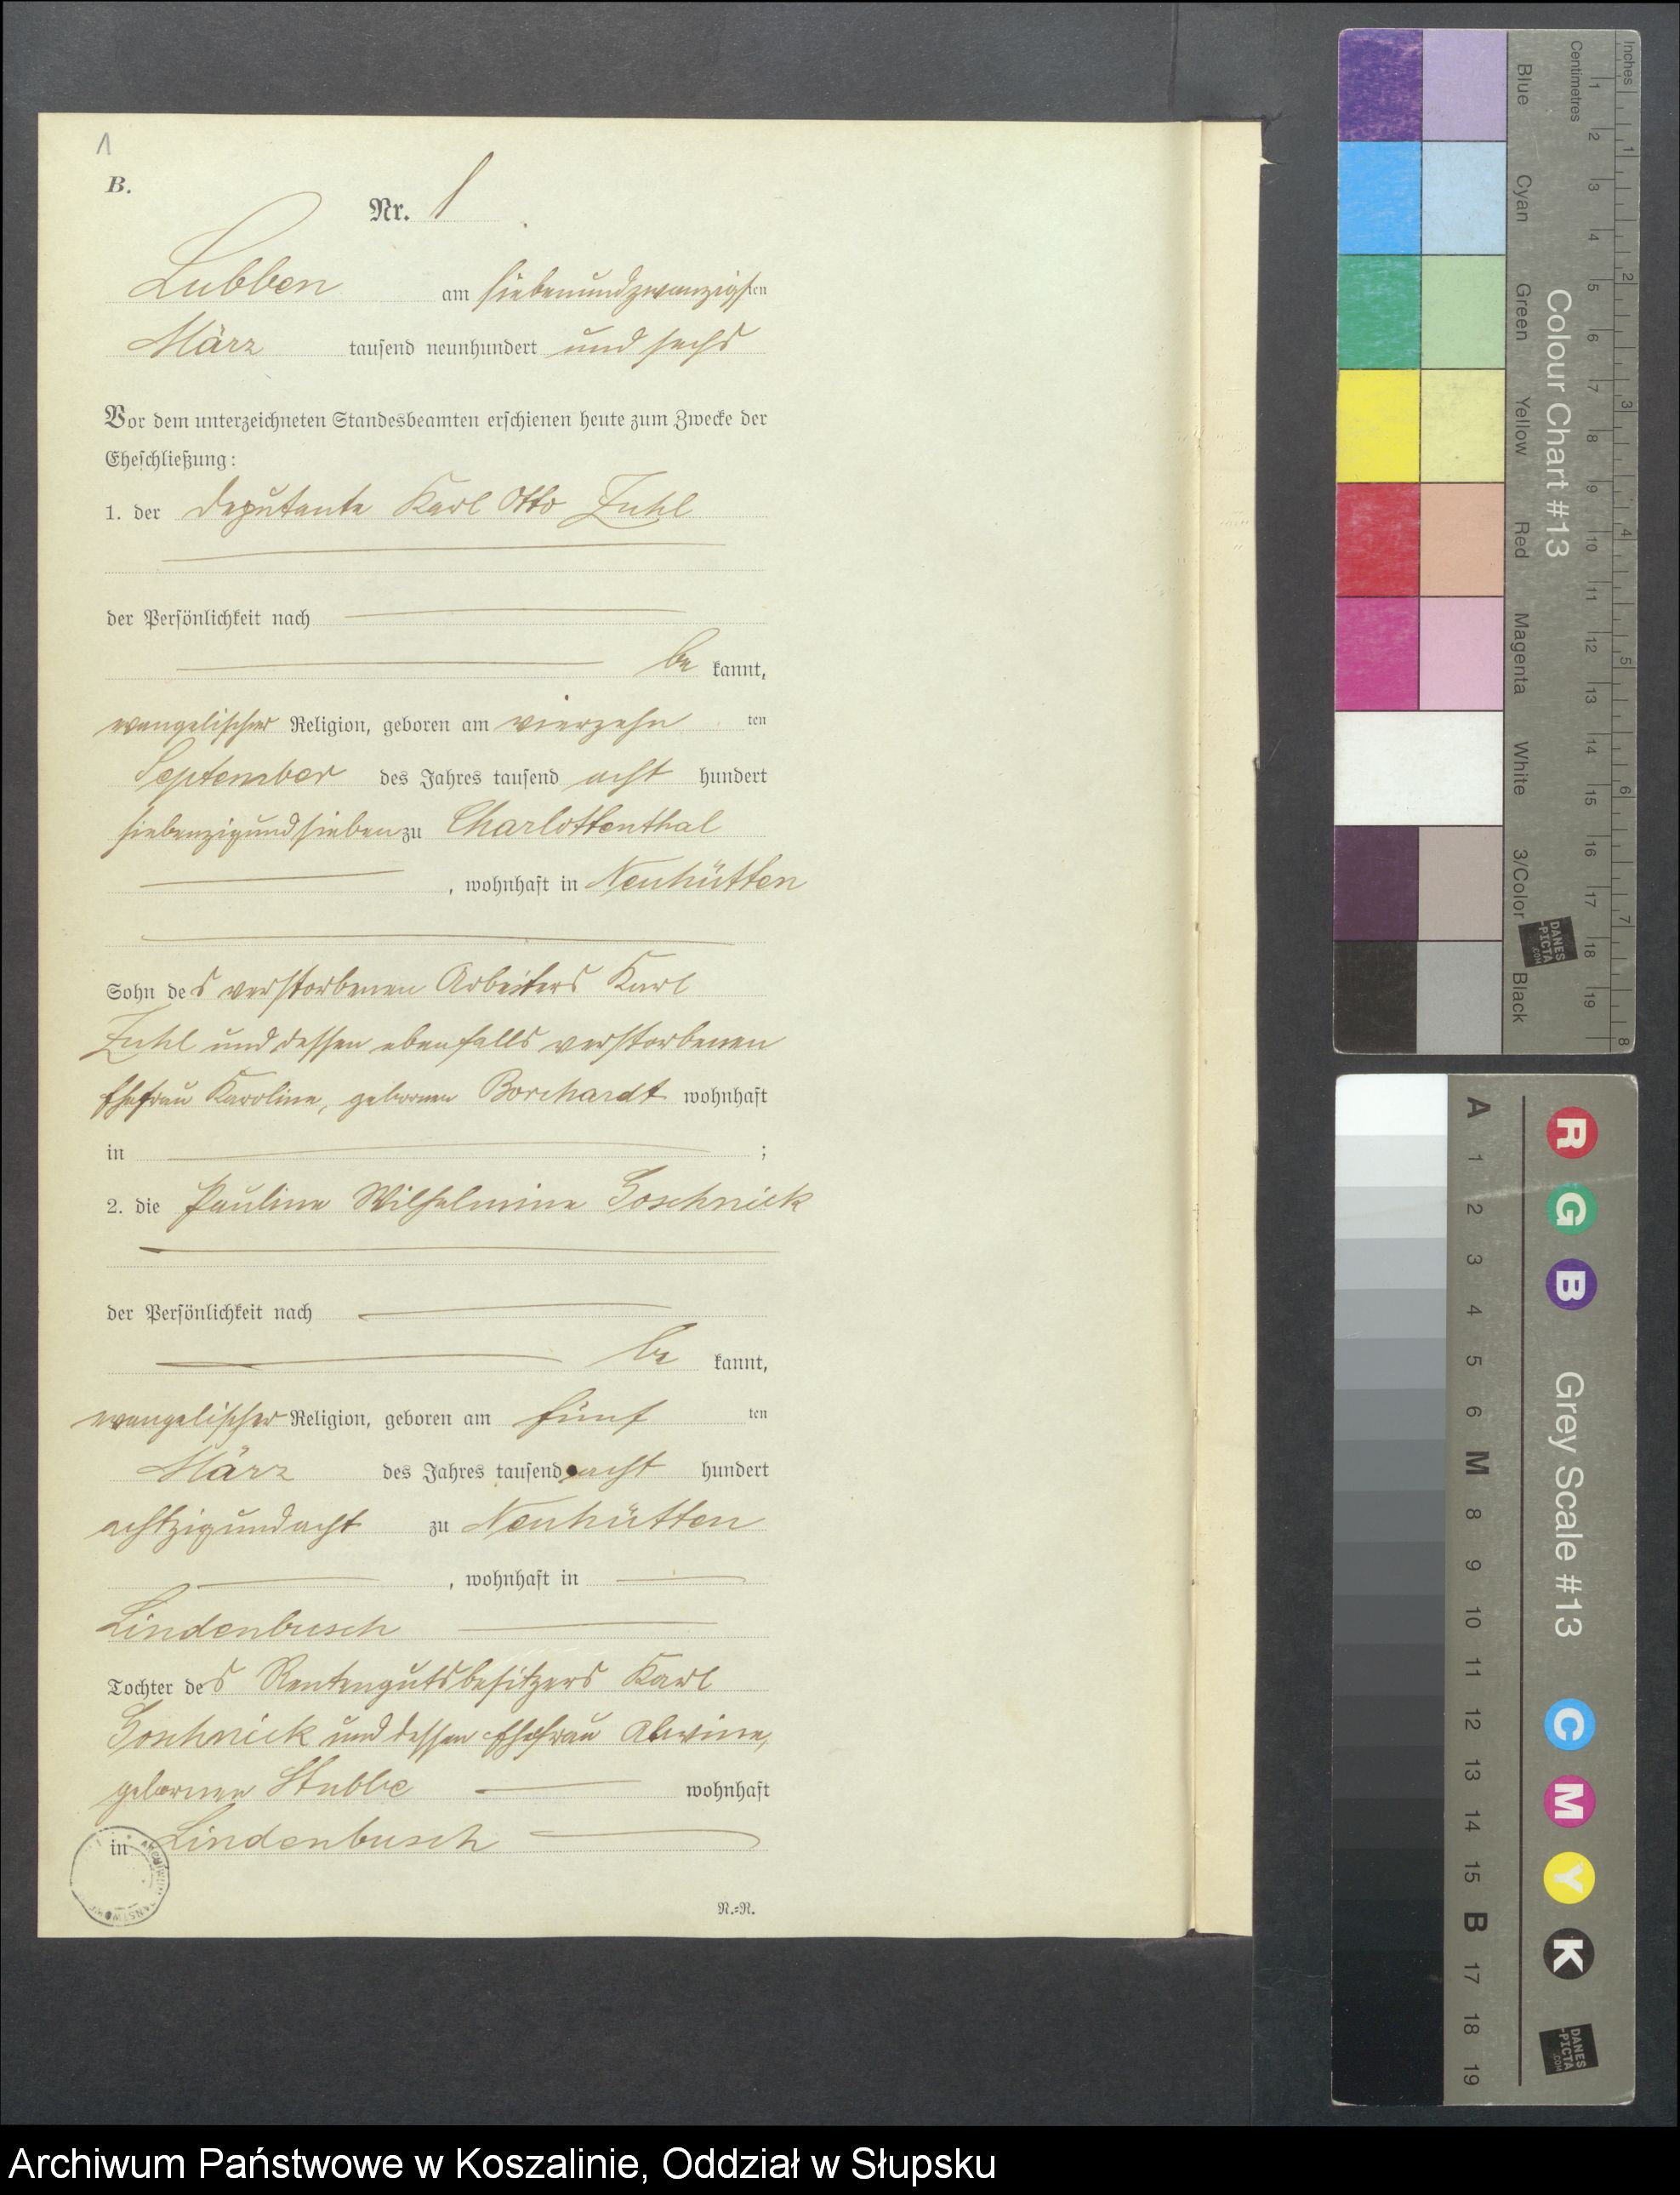 1
B.
Nr. 1
Lubben am siebenundzwanzigsten
März tausend neunhundert und sechs
Vor dem unterzeichneten Standesbeamten erschienen heute zum Zwecke der
Eheschließung:
1. der Deputante Karl Otto Zuhl
der Persönlichkeit nach
be kannt,
evangelischer Religion, geboren am vierzehn ten
September des Jahres tausend acht hundert
siebenzigundsieben zu Charlottenthal
, wohnhaft in Neuhütten
Sohn des verstorbenen Arbeiters Karl
Zuhl und dessen ebenfalls verstorbenen
Ehefrau Karoline, gebornen Borchardt wohnhaft
in ;
2. die Pauline Wilhelmine Goschnick
der Persönlichkeit nach
be kannt,
evangelischer Religion, geboren am fünf ten
März des Jahres tausend acht hundert
achtzigundacht zu Neuhütten
, wohnhaft in
Lindenbusch
Tochter des Rentengutsbesitzers Karl
Goschnick und dessen Ehefrau Alwine,
gebornen Stubbe wohnhaft
in Lindenbusch
N.=N.
Inches
Centimetres
1 2 3 4 5 6 7 8
1 2 3 4 5 6 7 8 9 10 11 12 13 14 15 16 17 18 19
Colour Chart #13
Blue Cyan Green Yellow Red Magenta White 3/Color Black
DANES
-PICTA
.COM
R G B
Grey Scale #13
C M Y K
A 1 2 3 4 5 6 M 8 9 10 11 12 13 14 15 B 17 18 19
DANES
-PICTA
.COM
Archiwum Państwowe w Koszalinie, Oddział w Słupsku